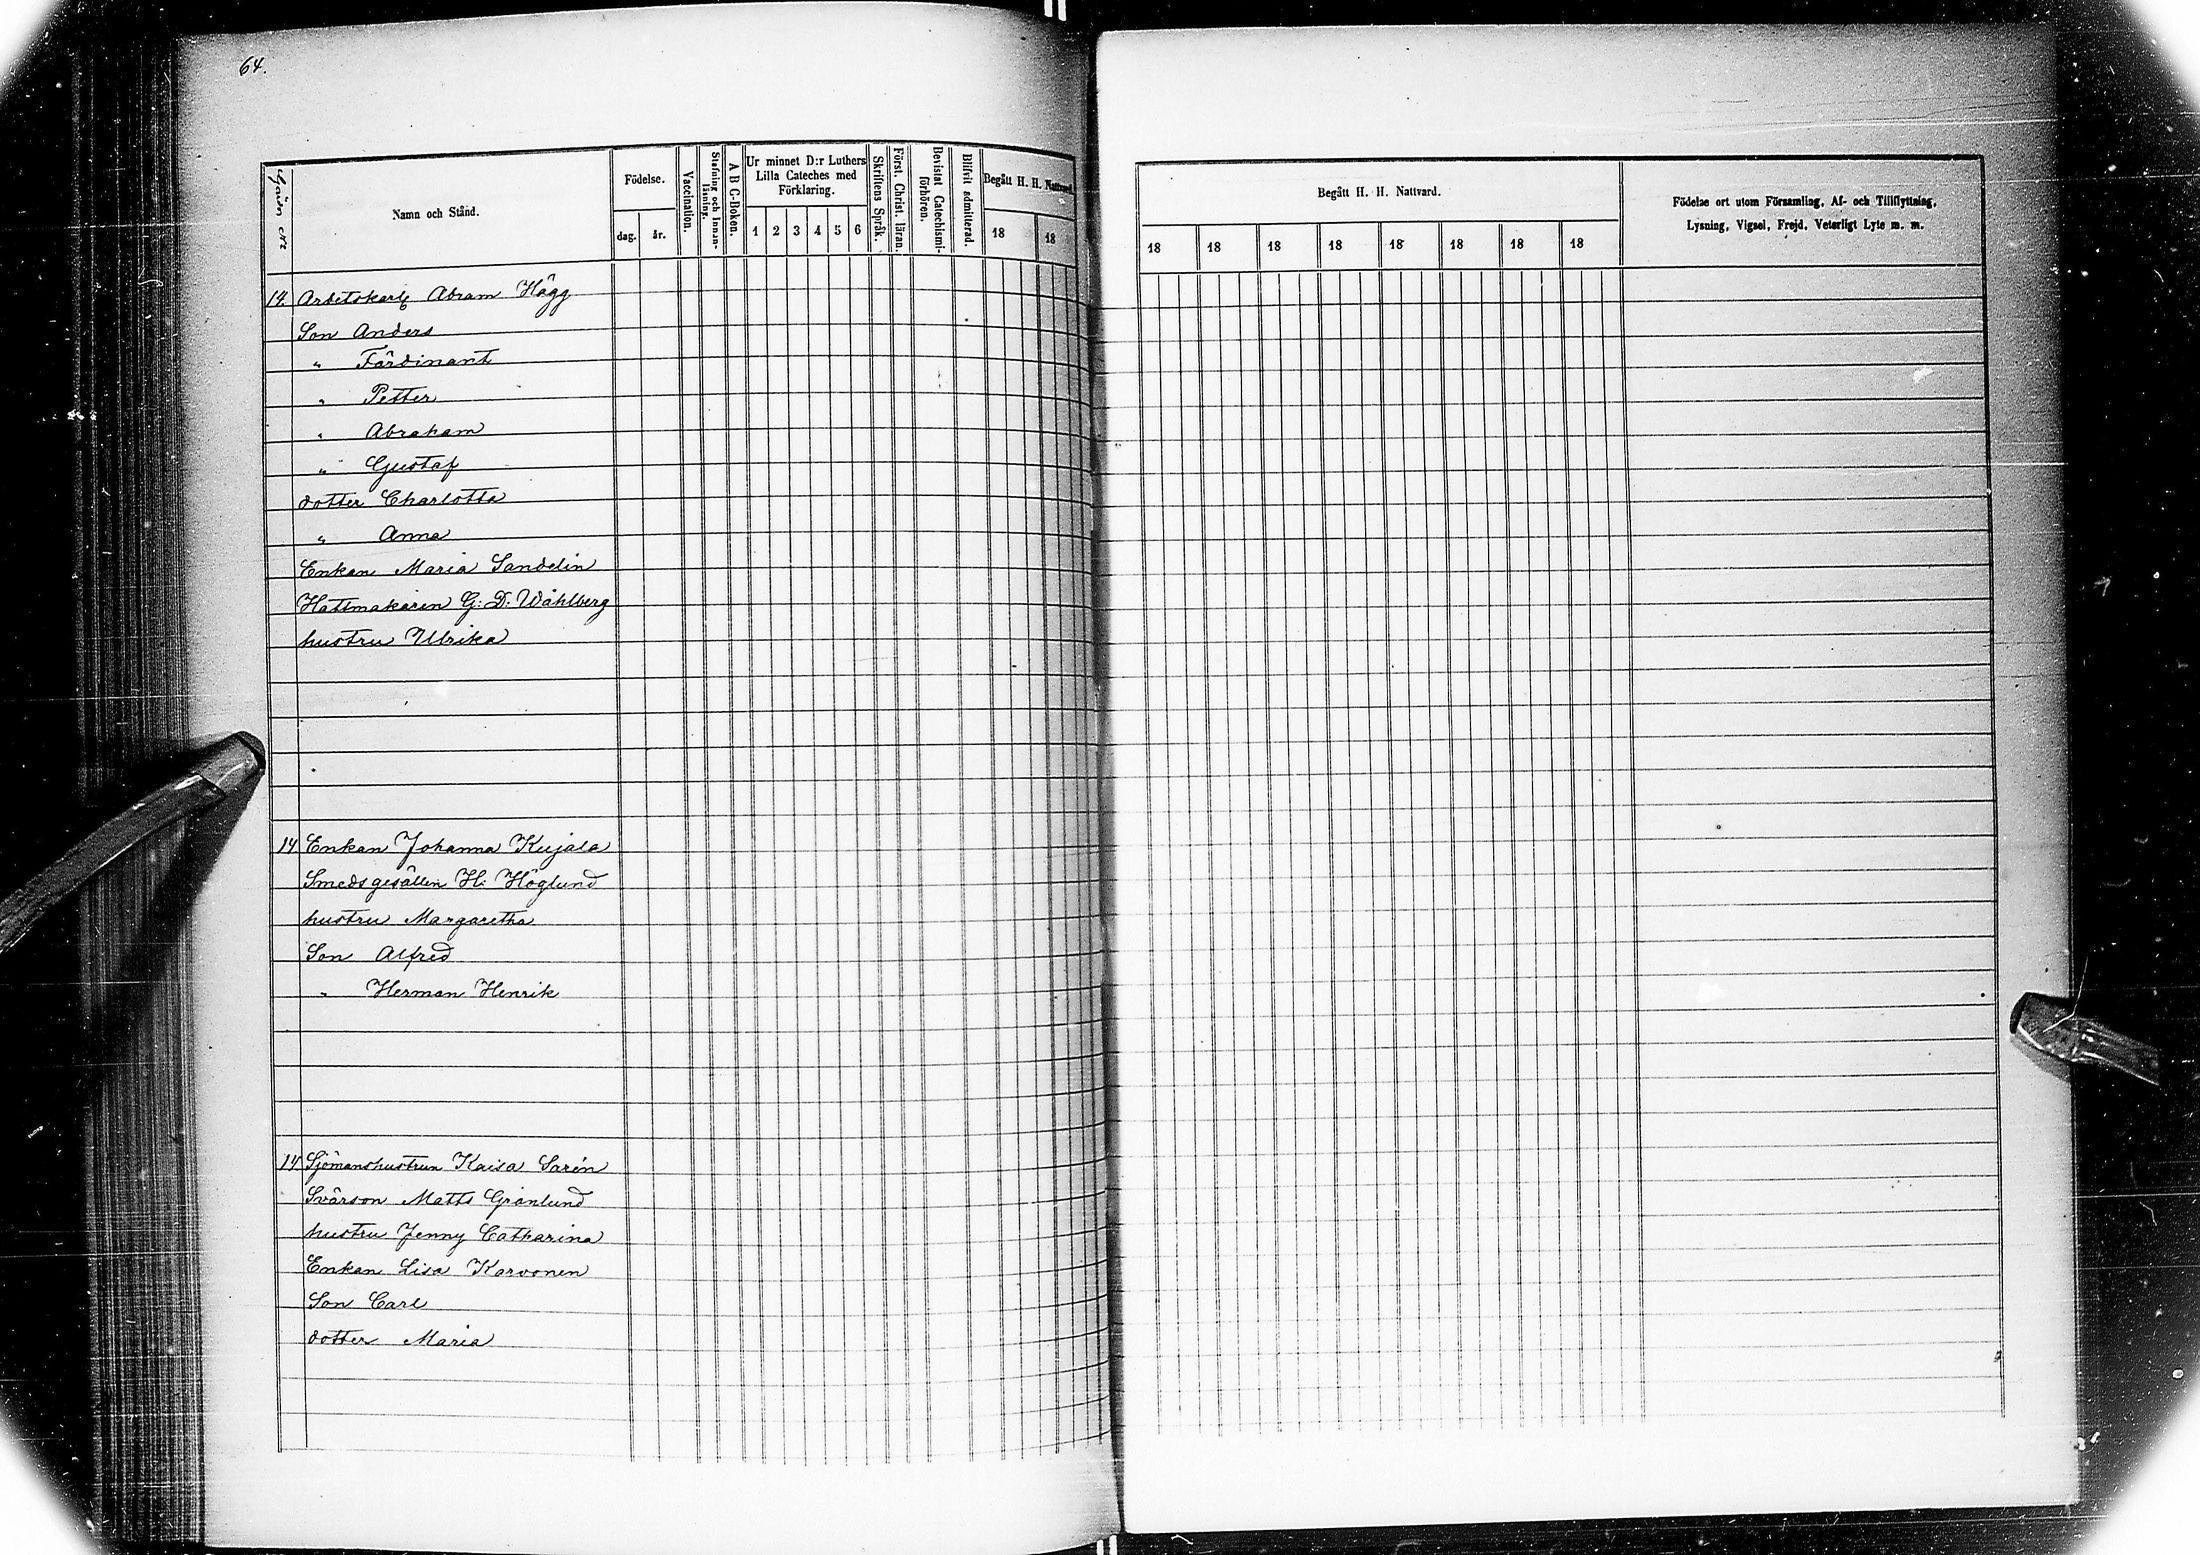 64.
Gården №
Namn och Stånd.
Födelse.
dag. år.
Vaccination.
Stafning och Innan-läsning.
A B C-Boken.
Ur minnet D:r Luthers
Lilla Cateches med
Förklaring.
1 2 3 4 5 6
Skriftens Språk.
Först. Christ. läran.
Bevistat Catechismi-förhören.
Blifvit admitterad.
Begått H. H. Nattvard.
18 18
Begått H. H. Nattvard.
18 18 18 18 18 18 18 18
Födelse ort utom Församling, Af- och Tillflyttning,
Lysning, Vigsel, Frejd, Veterligt Lyte m. m.
14 Arbetskarlε Abram Hägg
Son Anders
" Färdinant
" Petter
" Abraham
" Gustaf
dotter Charlotta
" Anna
Enkan Maria Sandelin
Hattmakaren G: D: Wåhlberg
hustru Ulrika
14 Enkan Johanna Kujala
Smedsgesällen H: Höglund
hustru Margaretha
Son Alfred
" Herman Henrik
14 Sjömanshustrun Kaisa Sarén
Svärson Matts Grönlund
hustru Jenny Catharina
Enkan Lisa Karvonen
Son Carl
dotter Maria